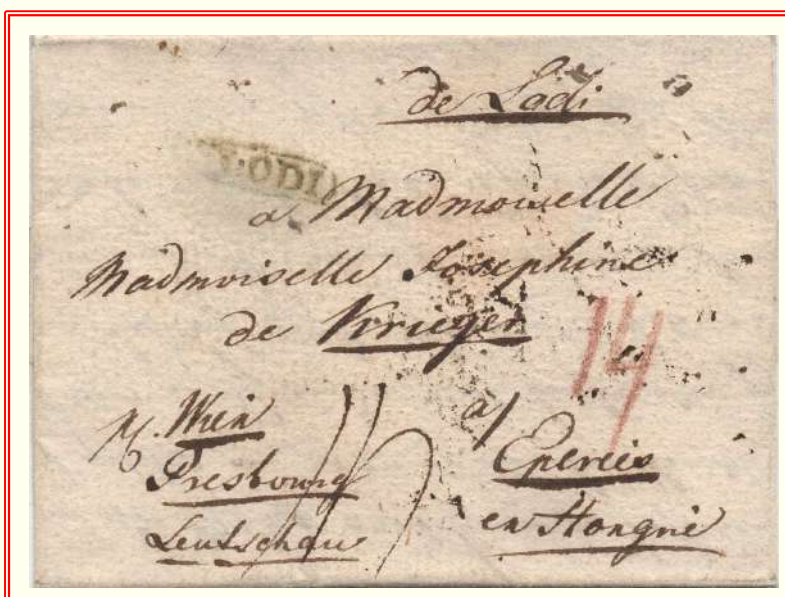 de Lodi
LODI
a Madmoiselle
Madmoiselle Josephine
de Krieger
14
a
p. Wien
Presbourg
Leutschau
Eperies
en Hongrie